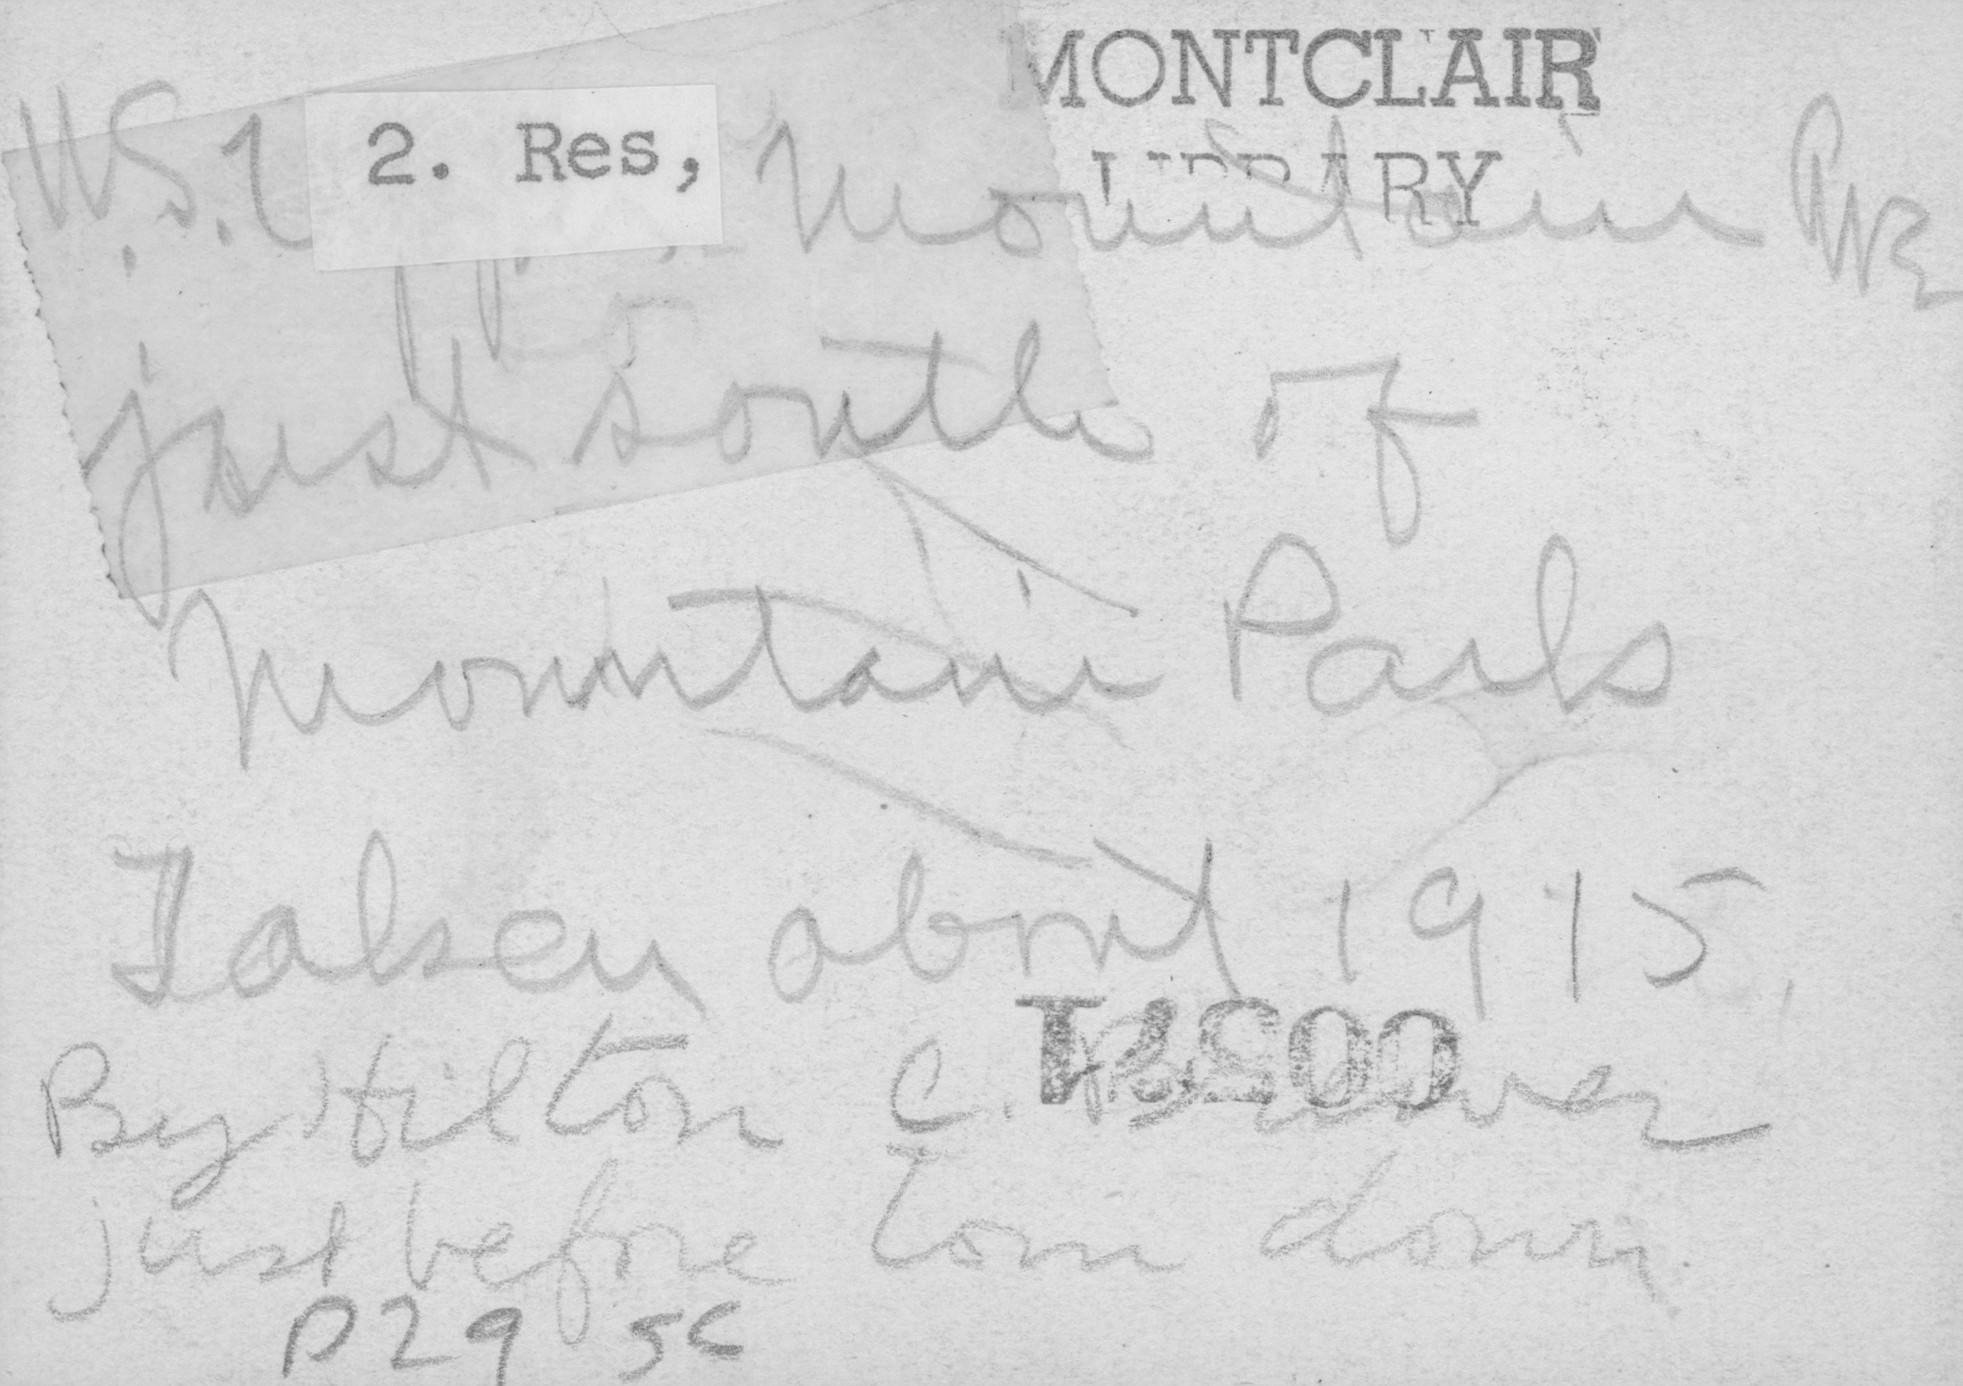 MONTCLAIR
LIBRARY
2. Res,
W.S. Mountain
just south of
Mountain Park
Taken about 1915.
By Hilton C.
just before torn down.
P29 5c